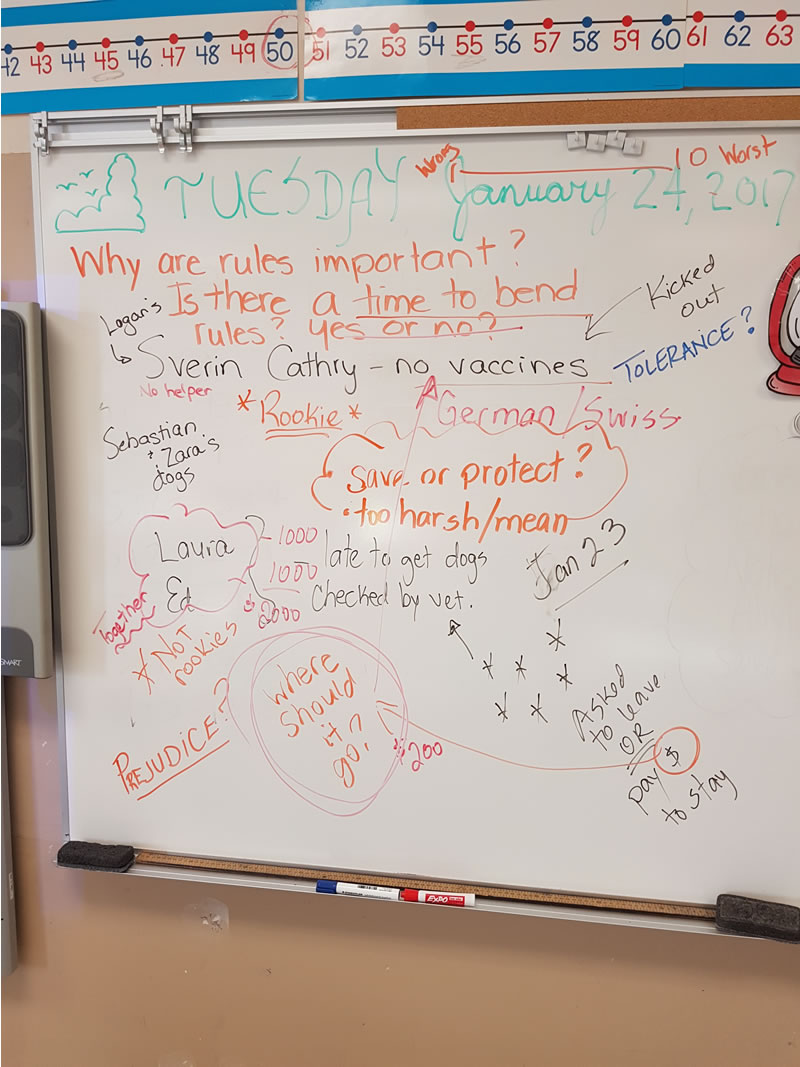 42 43 44 45 46 47 48 49 50 51 52 53 54 55 56 57 58 59 60 61 62 63
Wrong 1 10 Worst
TUESDAY January 24, 2017
Why are rules important?
Is there a time to bend
rules? yes or no?
Kicked
out
Logan's
Sverin Cathry - no vaccines
TOLERANCE?
No helper
*Rookie*
German/Swiss
Sebastian
+ Zara's
dogs
save or protect?
too harsh/mean
Laura
Ed
Together
1000
1000
$2000
late to get dogs
checked by vet.
Jan 23
* Not
rookies
PREJUDICE?
where
should
it
go?
$200
Asked
to leave
OR
pay $
to stay
SMART
EXPO